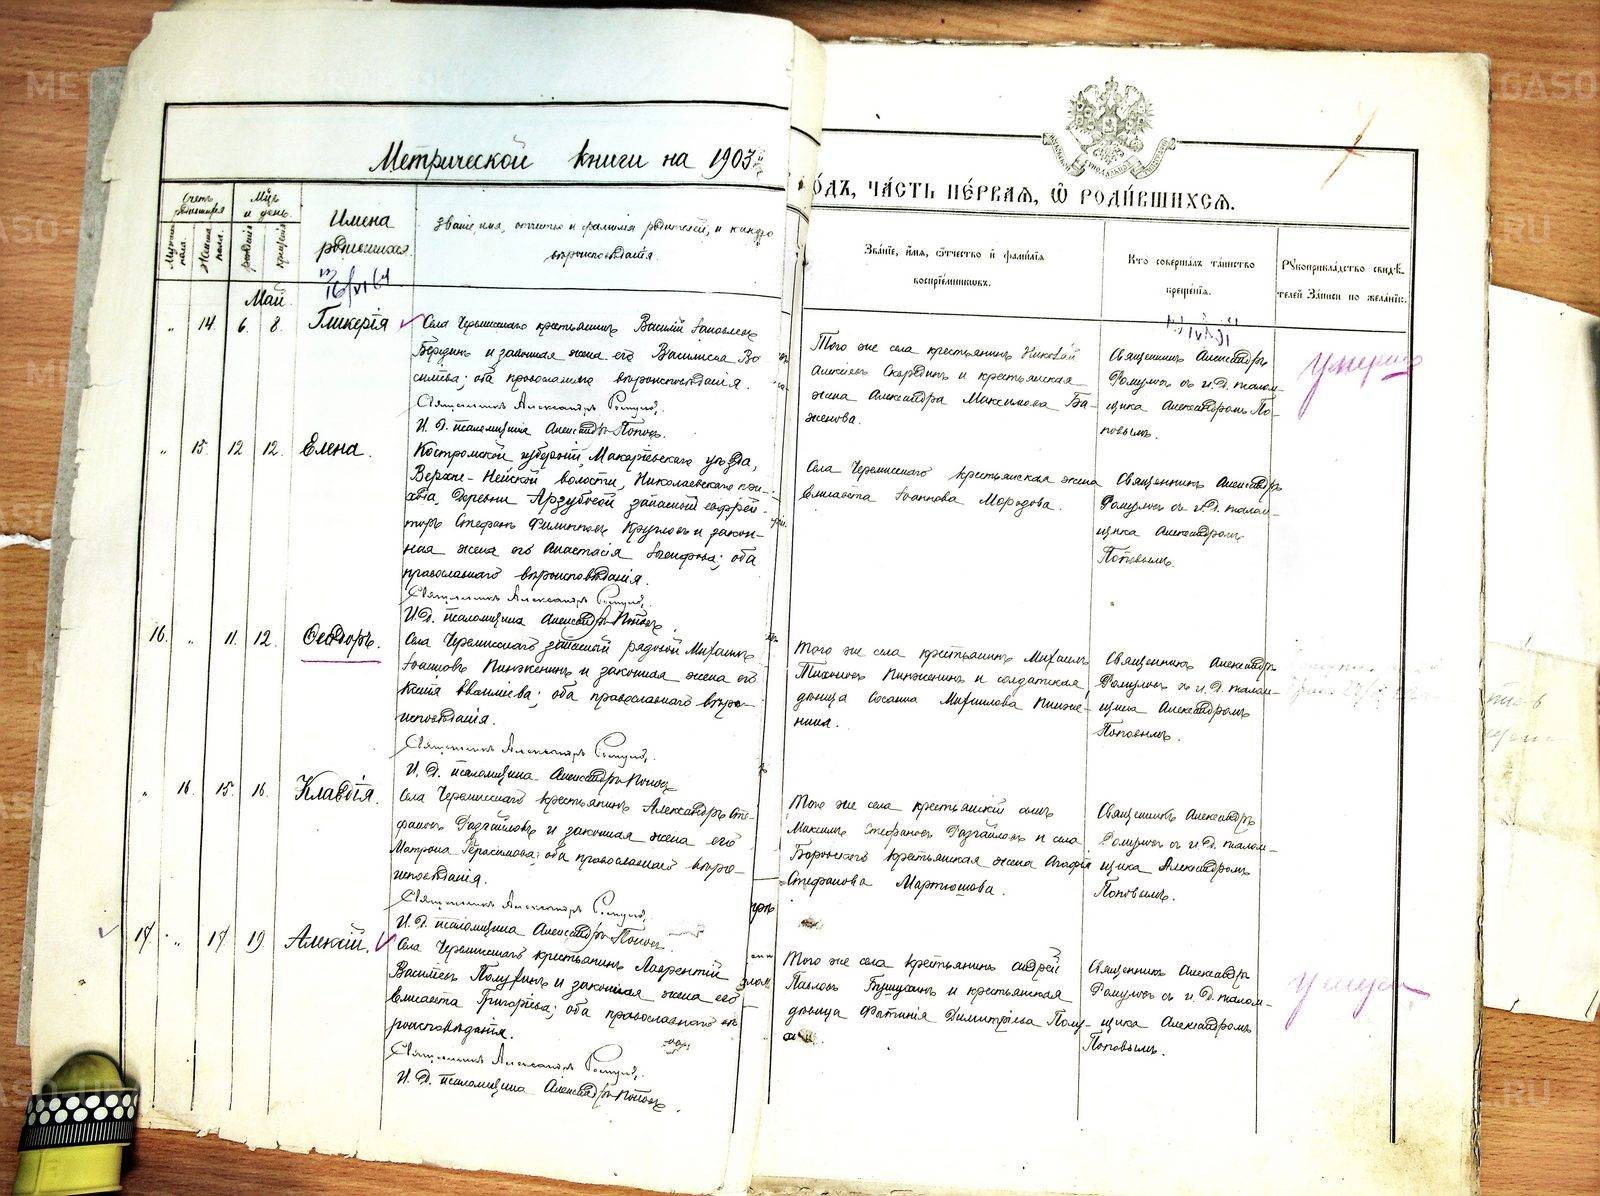 Метрической книги на 1903
одъ, часть первая, ѡ родившихся.
Счетъ родившихся
Мужеска пола.
Женска пола.
Мѣс. и день.
рожденія
крещенія
Имена родившихся.
Званіе, имя, отчество и фамилія родителей, и какого
вѣроисповѣданія.
Званіе, имя, отчество и фамилія
воспріемниковъ.
Кто совершалъ таинство
крещенія.
Рукоприкладство свидѣ-
телей записи по желанію.
Май.
" 14. 6. 8. Гликерія
Села Черемисскаго крестьянинъ Василій
и законная жена его Василисса Ва
сильева; оба православнаго вѣроисповѣданія.
Священникъ Александръ
И. Д. псаломщика Александръ Поповъ.
Того же села крестьянинъ Николай
Алексѣевъ Скорединъ и крестьянская
жена Александра Максимова Ба-
женова.
Священникъ Александръ
съ и. д. псалом-
щика Александромъ По-
повымъ.
умерла
" 15. 12 12. Елена.
Костромской губерніи, Макарьевскаго уѣзда,
Верхне-Нейской волости, Николаевскаго при-
хода, деревни Арзубовой запасный ефрей-
торъ Стефанъ Филипповъ Кругловъ и закон-
ная жена его Анастасія; оба
православнаго вѣроисповѣданія.
Священникъ Александръ
И. Д. псаломщика Александръ Поповъ.
Села Черемисскаго крестьянская жена
Елисавета Іоаннова Морозова.
Священникъ Александръ
съ и. д. псалом-
щика Александромъ
Поповымъ.
16. " 11. 12. Ѳеодоръ.
Села Черемисскаго запасный рядовой Михаилъ
Іоанновъ Пинженинъ и законная жена его
Ксенія; оба православнаго вѣро-
исповѣданія.
Священникъ Александръ
И. Д. псаломщика Александръ Поповъ
Того же села крестьянинъ Михаилъ
Тихоновъ Пинженинъ и солдатская
дѣвица Сосанна Михаилова Пинже-
нина.
Священникъ Александръ
съ и. д. псалом-
щика Александромъ
Поповымъ.
" 16. 15. 16. Клавдія.
Села Черемисскаго крестьянинъ Александръ Сте-
фановъ и законная жена его
Матрона Герасимова; оба православнаго вѣро-
исповѣданія.
Священникъ Александръ
И. Д. псаломщика Александръ Поповъ.
Того же села крестьянскій сынъ
Максимъ Стефановъ и села
крестьянская жена Агафія
Стефанова Мартюшова.
Священникъ Александръ
съ и. д. псалом-
щика Александромъ
Поповымъ.
17 " 17 19. Алексій.
Села Черемисскаго крестьянинъ Лаврентій
Васильевъ и законная жена его
Елисавета Григорьева; оба православнаго вѣ
роисповѣданія.
Священникъ Александръ
И. Д. псаломщика Александръ Поповъ.
Того же села крестьянинъ Андрей
Павловъ и крестьянская
дѣвица Фотинія Димитріева
Священникъ Александръ
съ и. д. псалом-
щика Александромъ
Поповымъ.